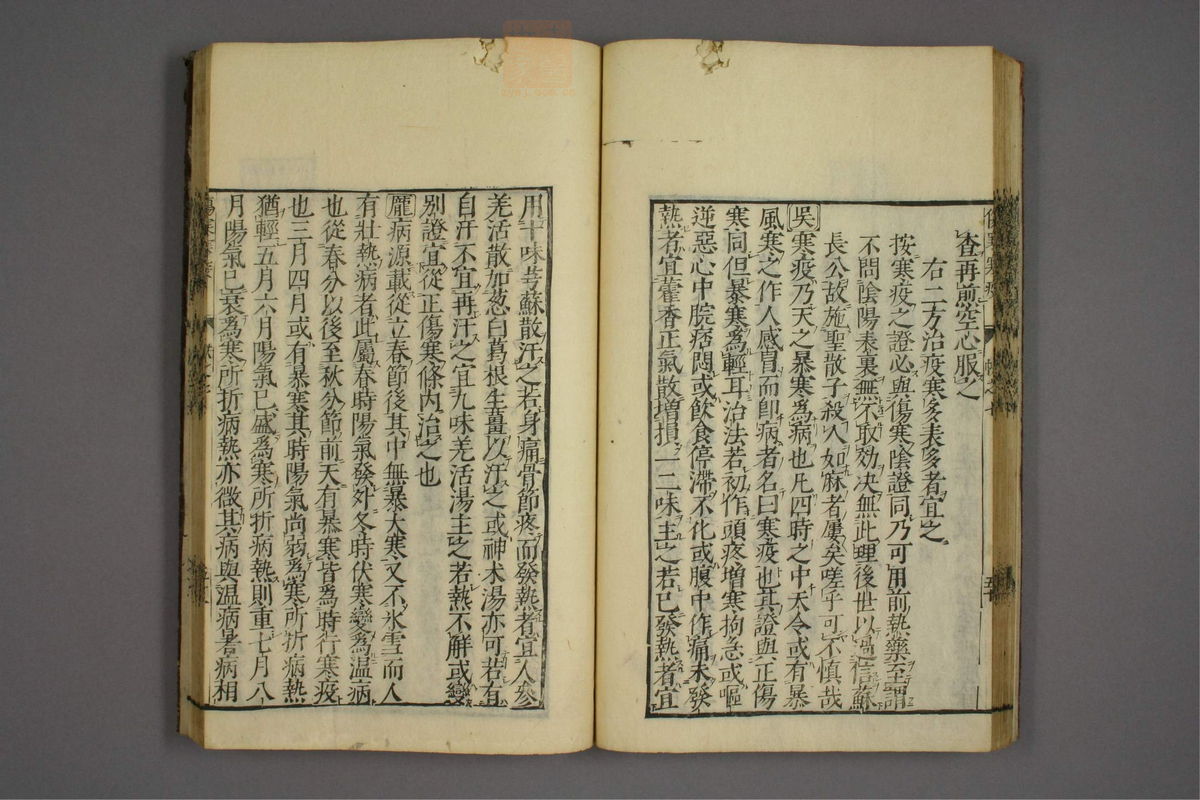 查再煎空心服之
右二方治疫寒多表多者宜之
按寒疫之證必與傷寒陰證同乃可用前熱藥至謂
不問陰陽表裏無不取効決無此理後世以過信蘇
長公故施聖散子殺人如麻者屢矣嗟乎可不慎哉
吳寒疫乃天之暴寒為病也凡四時之中天令或有暴
風寒之作人感冒而卽病者名曰寒疫也其證與正傷
寒同但暴寒為輕耳治法若初作頭疼增寒拘急或嘔
逆惡心中脘痞悶或飲食停滯不化或腹中作痛未發
熱者宜藿香正氣散增損一二味主之若已發熱者宜
用十味芎蘇散汗之若身痛骨節疼而發熱者宜人參
羌活散加葱白葛根生薑以汗之或神术湯亦可若有
自汗不宜再汗之宜九味羌活湯主之若熱不解或變
别證宜從正傷寒條內治之也
龐病源載從立春節後其中無暴大寒又不氷雪而人
有壯熱病者此屬春時陽氣發於冬時伏寒變為温病
也從春分以後至秋分節前天有暴寒皆為時行寒疫
也三月四月或有暴寒其時陽氣尚弱為寒所折病熱
猶輕五月六月陽氣已盛為寒所折病熱則重七月八
月陽氣已衰為寒所折病熱亦微其病與温病暑病相